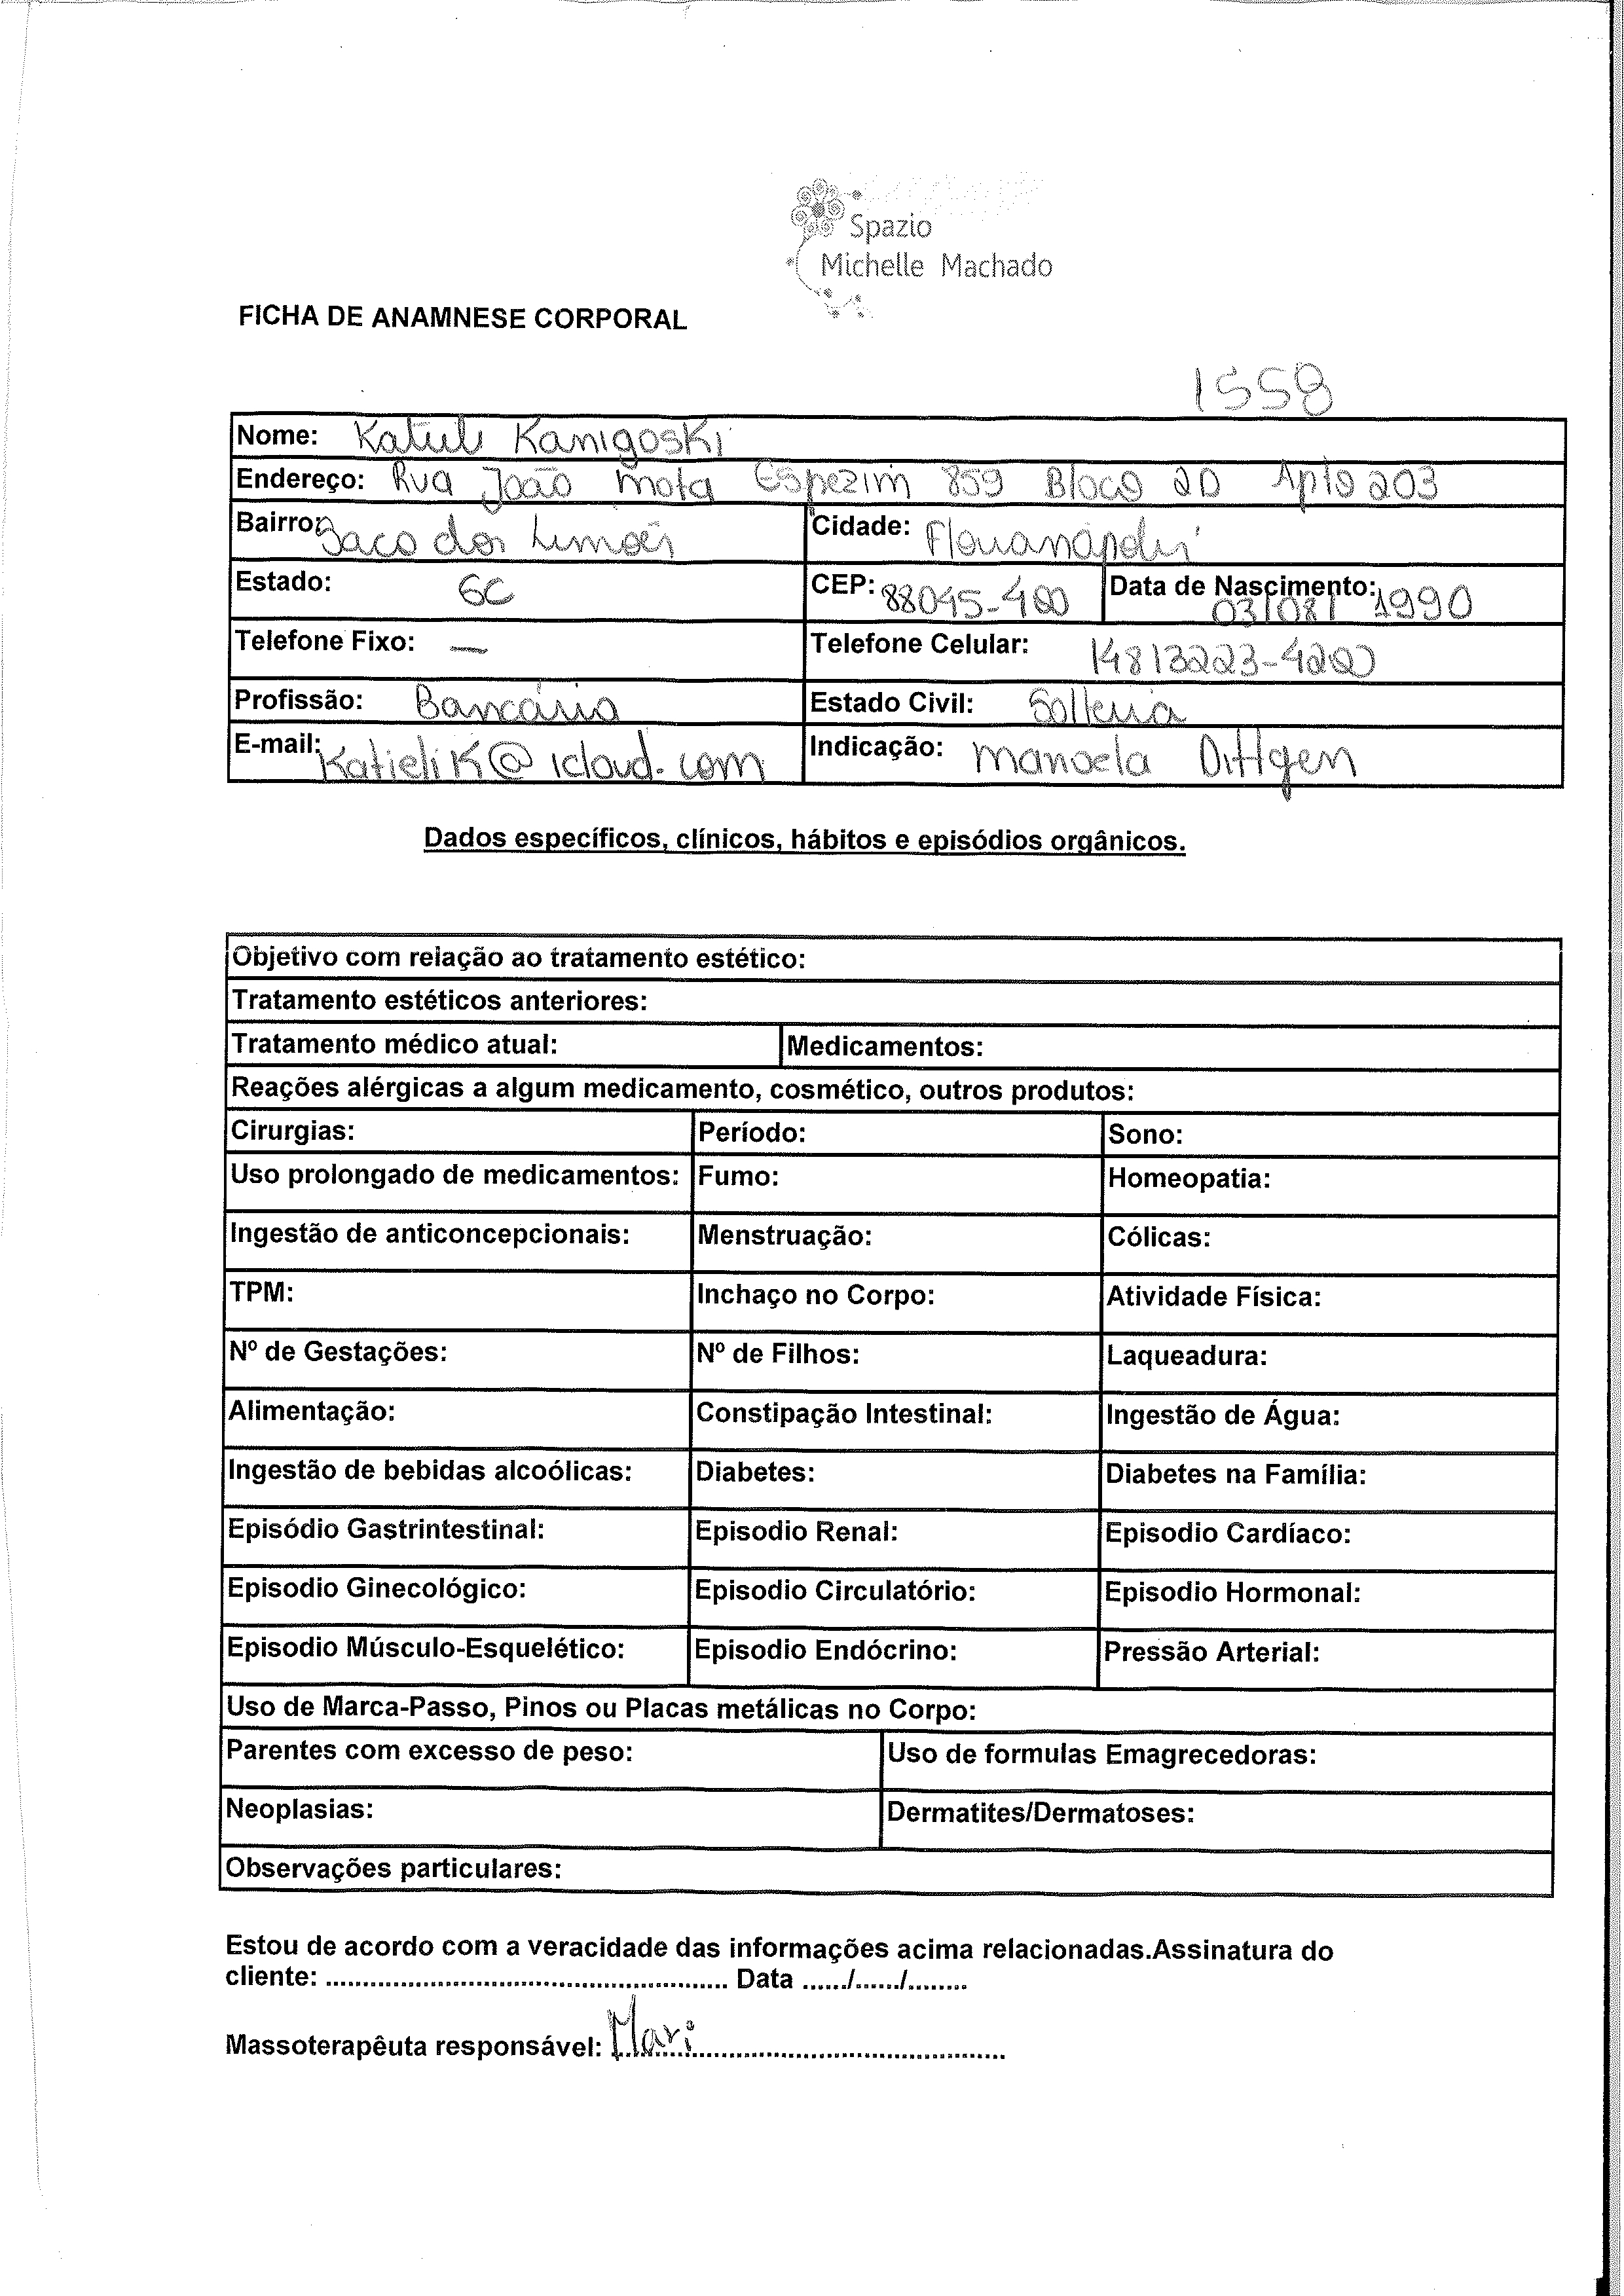 Spazio
Michelle Machado
FICHA DE ANAMNESE CORPORAL
1558
Nome: Katieli Kanigoski
Endereço: Rua João Mota Espezim 859 Bloco 2D Apto 203
Bairro: Saco dos Limões Cidade: Florianópolis
Estado: SC CEP: 88045-400 Data de Nascimento: 03/08/1990
Telefone Fixo: — Telefone Celular:
Profissão: Bancária Estado Civil: Solteira
E-mail: KatieliK@icloud.com Indicação: Manoela Dittgen
Dados específicos, clínicos, hábitos e episódios orgânicos.
Objetivo com relação ao tratamento estético:
Tratamento estéticos anteriores:
Tratamento médico atual: Medicamentos:
Reações alérgicas a algum medicamento, cosmético, outros produtos:
Cirurgias: Período: Sono:
Uso prolongado de medicamentos: Fumo: Homeopatia:
Ingestão de anticoncepcionais: Menstruação: Cólicas:
TPM: Inchaço no Corpo: Atividade Física:
Nº de Gestações: Nº de Filhos: Laqueadura:
Alimentação: Constipação Intestinal: Ingestão de Água:
Ingestão de bebidas alcoólicas: Diabetes: Diabetes na Família:
Episódio Gastrintestinal: Episodio Renal: Episodio Cardíaco:
Episodio Ginecológico: Episodio Circulatório: Episodio Hormonal:
Episodio Músculo-Esquelético: Episodio Endócrino: Pressão Arterial:
Uso de Marca-Passo, Pinos ou Placas metálicas no Corpo:
Parentes com excesso de peso: Uso de formulas Emagrecedoras:
Neoplasias: Dermatites/Dermatoses:
Observações particulares:
Estou de acordo com a veracidade das informações acima relacionadas.Assinatura do
cliente: ...................................................... Data ....../....../........
Massoterapêuta responsável: Mari..........................................